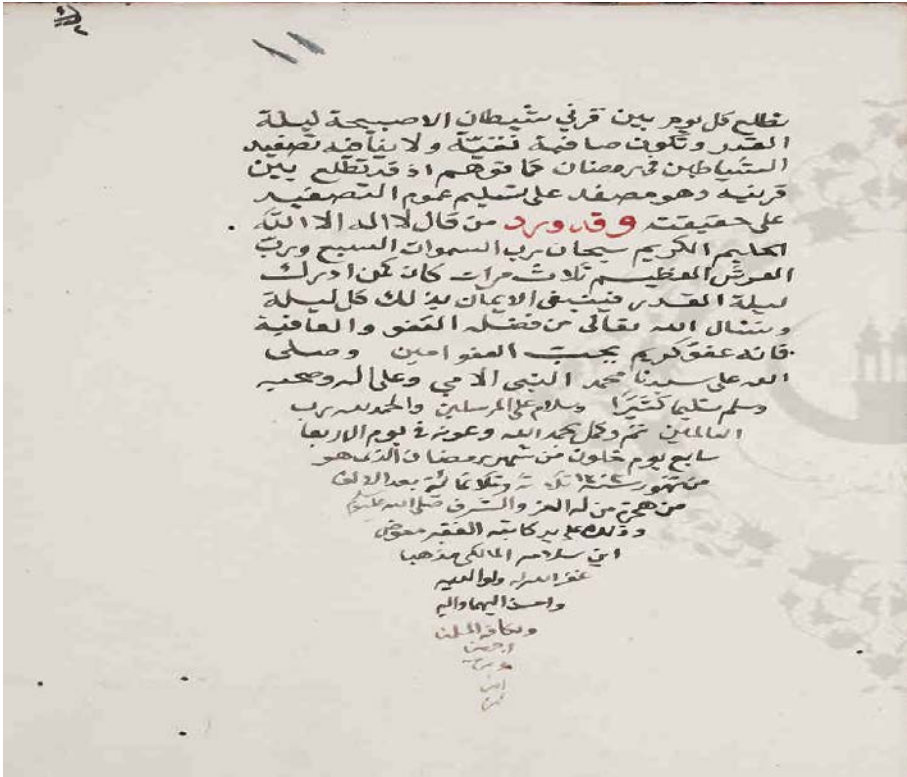 تطلع كل يوم بين قرني شيطان الا صبيحة ليلة
القدر وتكون صافية نقية ولا ينافيه تصفيد
الشياطين في رمضان كما توهم اذ قد تطلع بين
قرنيه وهو مصفد على تسليم عموم التصفيد
على حقيقته وقد ورد من قال لا اله الا الله
الحليم الكريم سبحان رب السموات السبع ورب
العرش العظيم ثلاث مرات كان كمن ادرك
ليلة القدر فينبغي الاتيان بذلك كل ليلة
ونسال الله تعالى من فضله العفو والعافية
فانه عفو كريم يحب العفو امين وصلى
الله على سيدنا محمد النبي الامي وعلى اله وصحبه
وسلم تسليما كثيرا وسلام على المرسلين والحمد لله رب
العالمين تم وكمل بحمد الله وعونه في يوم الاربعا
سابع يوم خلون من شهر رمضان الذى هو
من شهور سنة ثلاثة وثلاثمائة بعد الالف
من هجرة من له العز والشرف صلى الله عليه وسلم
وذلك على يد كاتبه الفقير معوض
ابن سلامه المالكى مذهبا
غفر الله له ولوالديه
واحسن اليهما واليه
ولكافة المسلمين
اجمعين
امين